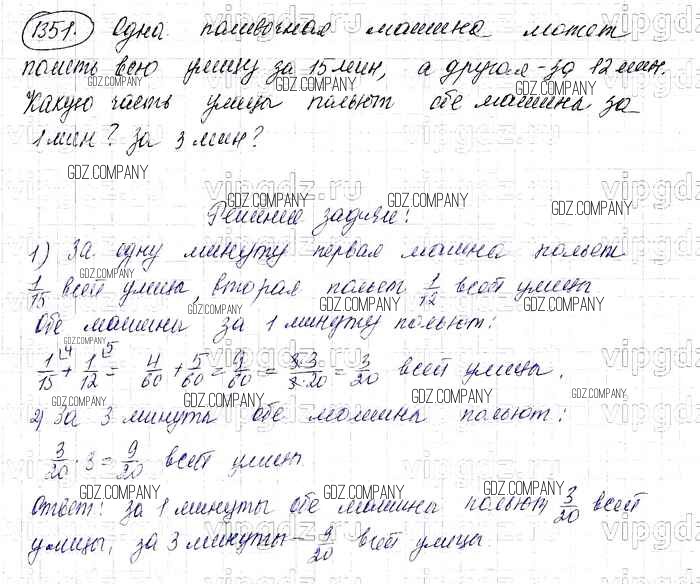 1351. Одна поливочная машина может
полить всю улицу за 15 мин, а другая - за 12 мин.
Какую часть улицы польют обе машины за
1 мин? за 3 мин?
Решение задачи:
1) За одну минуту первая машина польёт
1/15 всей улицы, вторая польёт 1/12 всей улицы
Обе машины за 1 минуту польют:
1/15 + 1/12 = 4/60 + 5/60 = 9/60 = 3·3/3·20 = 3/20 всей улицы.
2) За 3 минуты обе машины польют:
3/20 · 3 = 9/20 всей улицы
Ответ: за 1 минуты обе машины польют 3/20 всей
улицы, за 3 минуты - 9/20 всей улицы.
GDZ.COMPANY
vipgdz.ru